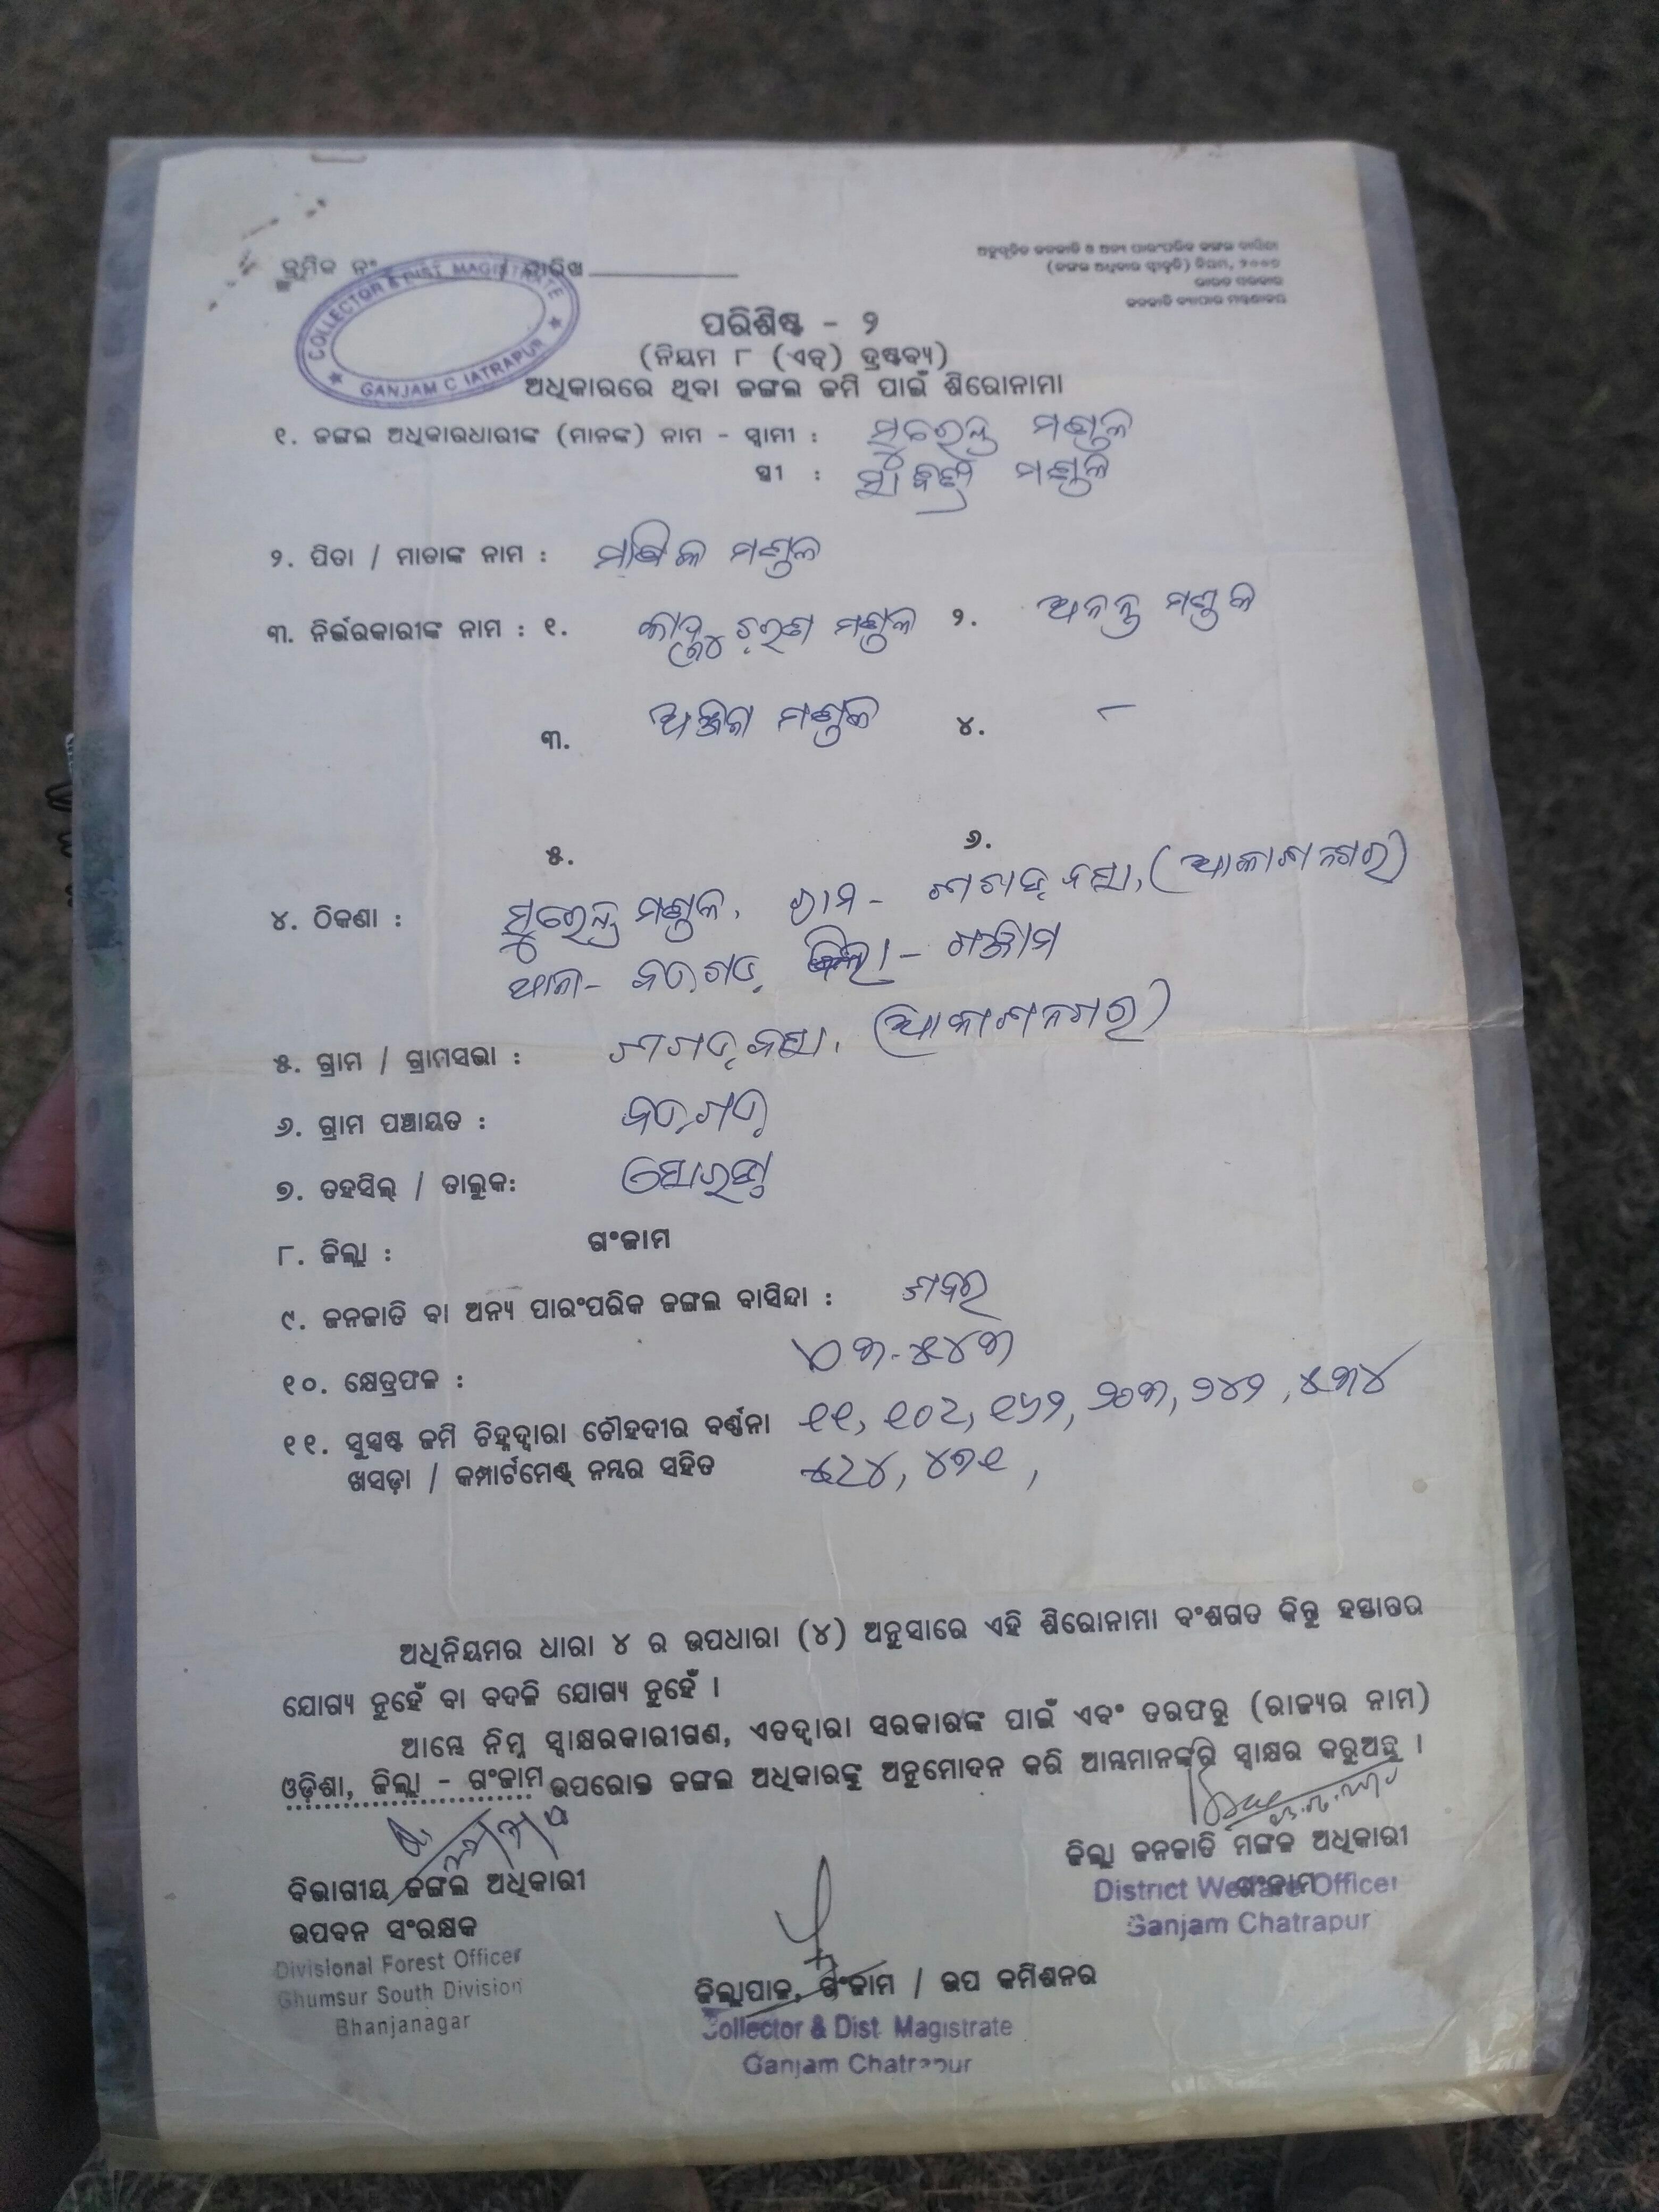 କ୍ରମିକ ନଂ / ତାରିଖ
COLLECTOR & DIST. MAGISTRATE
GANJAM C IATRAPUR
ଅନୁସୂଚିତ ଜନଜାତି ଓ ଅନ୍ୟ ପାରଂପରିକ ଜଙ୍ଗଲ ବାସିନ୍ଦା
(ଜଙ୍ଗଲ ଅଧିକାର ସ୍ବୀକୃତି) ନିୟମ, ୨୦୦୭
ଭାରତ ସରକାର
ଜନଜାତି ବ୍ୟାପାର ମନ୍ତ୍ରଣାଳୟ
ପରିଶିଷ୍ଟ - ୨
(ନିୟମ ୮ (ଏଚ୍) ଦ୍ରଷ୍ଟବ୍ୟ)
ଅଧିକାରରେ ଥିବା ଜଙ୍ଗଲ ଜମି ପାଇଁ ଶିରୋନାମା
୧. ଜଙ୍ଗଲ ଅଧିକାରଧାରୀଙ୍କ (ମାନଙ୍କ) ନାମ - ସ୍ୱାମୀ : ସୁରେନ୍ଦ୍ର ମଣ୍ଡଳ
ସ୍ତ୍ରୀ : ସାବିତ୍ରୀ ମଣ୍ଡଳ
୨. ପିତା / ମାତାଙ୍କ ନାମ : ମଣ୍ଡଳ
୩. ନିର୍ଭରକାରୀଙ୍କ ନାମ : ୧. ଚରଣ ମଣ୍ଡଳ ୨. ଅନନ୍ତ ମଣ୍ଡଳ
୩. ମଣ୍ଡଳ ୪. –
୫. ୬.
୪. ଠିକଣା : ସୁରେନ୍ଦ୍ର ମଣ୍ଡଳ, ଗ୍ରାମ - (ଆକାଶନଗର)
ଥାନା - ବଡ଼ଗଡ଼, ଜିଲ୍ଲା - ଗଞ୍ଜାମ
୫. ଗ୍ରାମ / ଗ୍ରାମସଭା : (ଆକାଶନଗର)
୬. ଗ୍ରାମ ପଞ୍ଚାୟତ : ବଡ଼ଗଡ଼
୭. ତହସିଲ୍ / ତାଲୁକ: ସୋରଡ଼ା
୮. ଜିଲ୍ଲା : ଗଂଜାମ
୯. ଜନଜାତି ବା ଅନ୍ୟ ପାରଂପରିକ ଜଙ୍ଗଲ ବାସିନ୍ଦା : ଶବର
୧୦. କ୍ଷେତ୍ରଫଳ :
୧୧. ସୁସ୍ପଷ୍ଟ ଜମି ଚିହ୍ନଦ୍ୱାରା ଚୌହଦୀର ବର୍ଣ୍ଣନା ୧୧, ୧୦୨, ୧୬୨, ୨୦୩, ୨୪୨, ୫୩୪
ଖସଡ଼ା / କମ୍ପାର୍ଟମେଣ୍ଟ୍ ନମ୍ବର ସହିତ ୫୨୪, ୪୭୧,
ଅଧିନିୟମର ଧାରା ୪ ର ଉପଧାରା (୪) ଅନୁସାରେ ଏହି ଶିରୋନାମା ବଂଶଗତ କିନ୍ତୁ ହସ୍ତାନ୍ତର
ଯୋଗ୍ୟ ନୁହେଁ ବା ବଦଳି ଯୋଗ୍ୟ ନୁହେଁ ।
ଆମ୍ଭେ ନିମ୍ନ ସ୍ୱାକ୍ଷରକାରୀଗଣ, ଏତଦ୍ୱାରା ସରକାରଙ୍କ ପାଇଁ ଏବଂ ତରଫରୁ (ରାଜ୍ୟର ନାମ)
ଓଡ଼ିଶା, ଜିଲ୍ଲା - ଗଂଜାମ ଉପରୋକ୍ତ ଜଙ୍ଗଲ ଅଧିକାରଙ୍କୁ ଅନୁମୋଦନ କରି ଆମ୍ଭମାନଙ୍କରି ସ୍ୱାକ୍ଷର କରୁଅଛୁ ।
ବିଭାଗୀୟ ଜଙ୍ଗଲ ଅଧିକାରୀ
ଉପବନ ସଂରକ୍ଷକ
Divisional Forest Officer
Ghumsur South Division
Bhanjanagar
ଜିଲ୍ଲା ଜନଜାତି ମଙ୍ଗଳ ଅଧିକାରୀ
ଗଂଜାମ
District Welfare Officer
Ganjam Chatrapur
ଜିଲ୍ଲାପାଳ, ଗଂଜାମ / ଉପ କମିଶନର
Collector & Dist. Magistrate
Ganjam Chatrapur